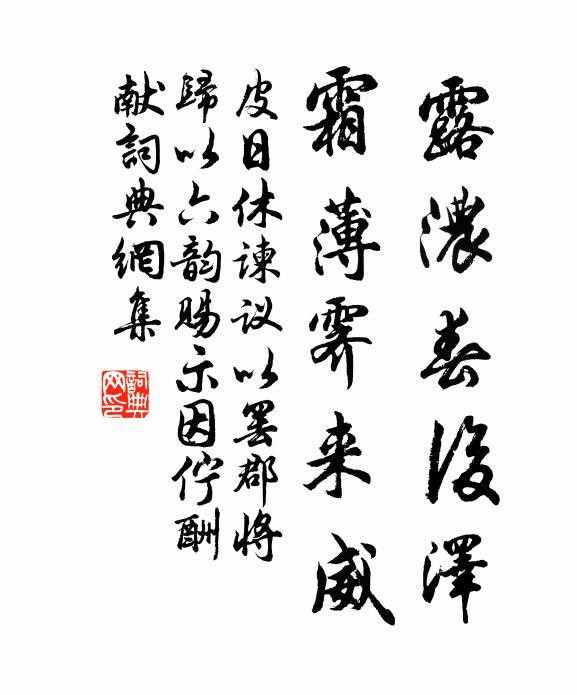 露濃春後澤
霜薄霽来威
皮日休諫议以罢郡將
歸以六韵賜示因佇酬
献詞典網集
詞典网印